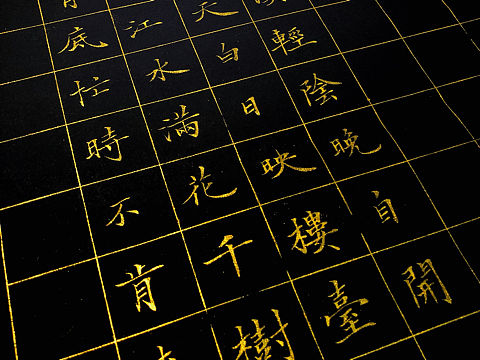 輕陰晚自開
天白日映樓臺
江水滿花千樹
底忙時不肯